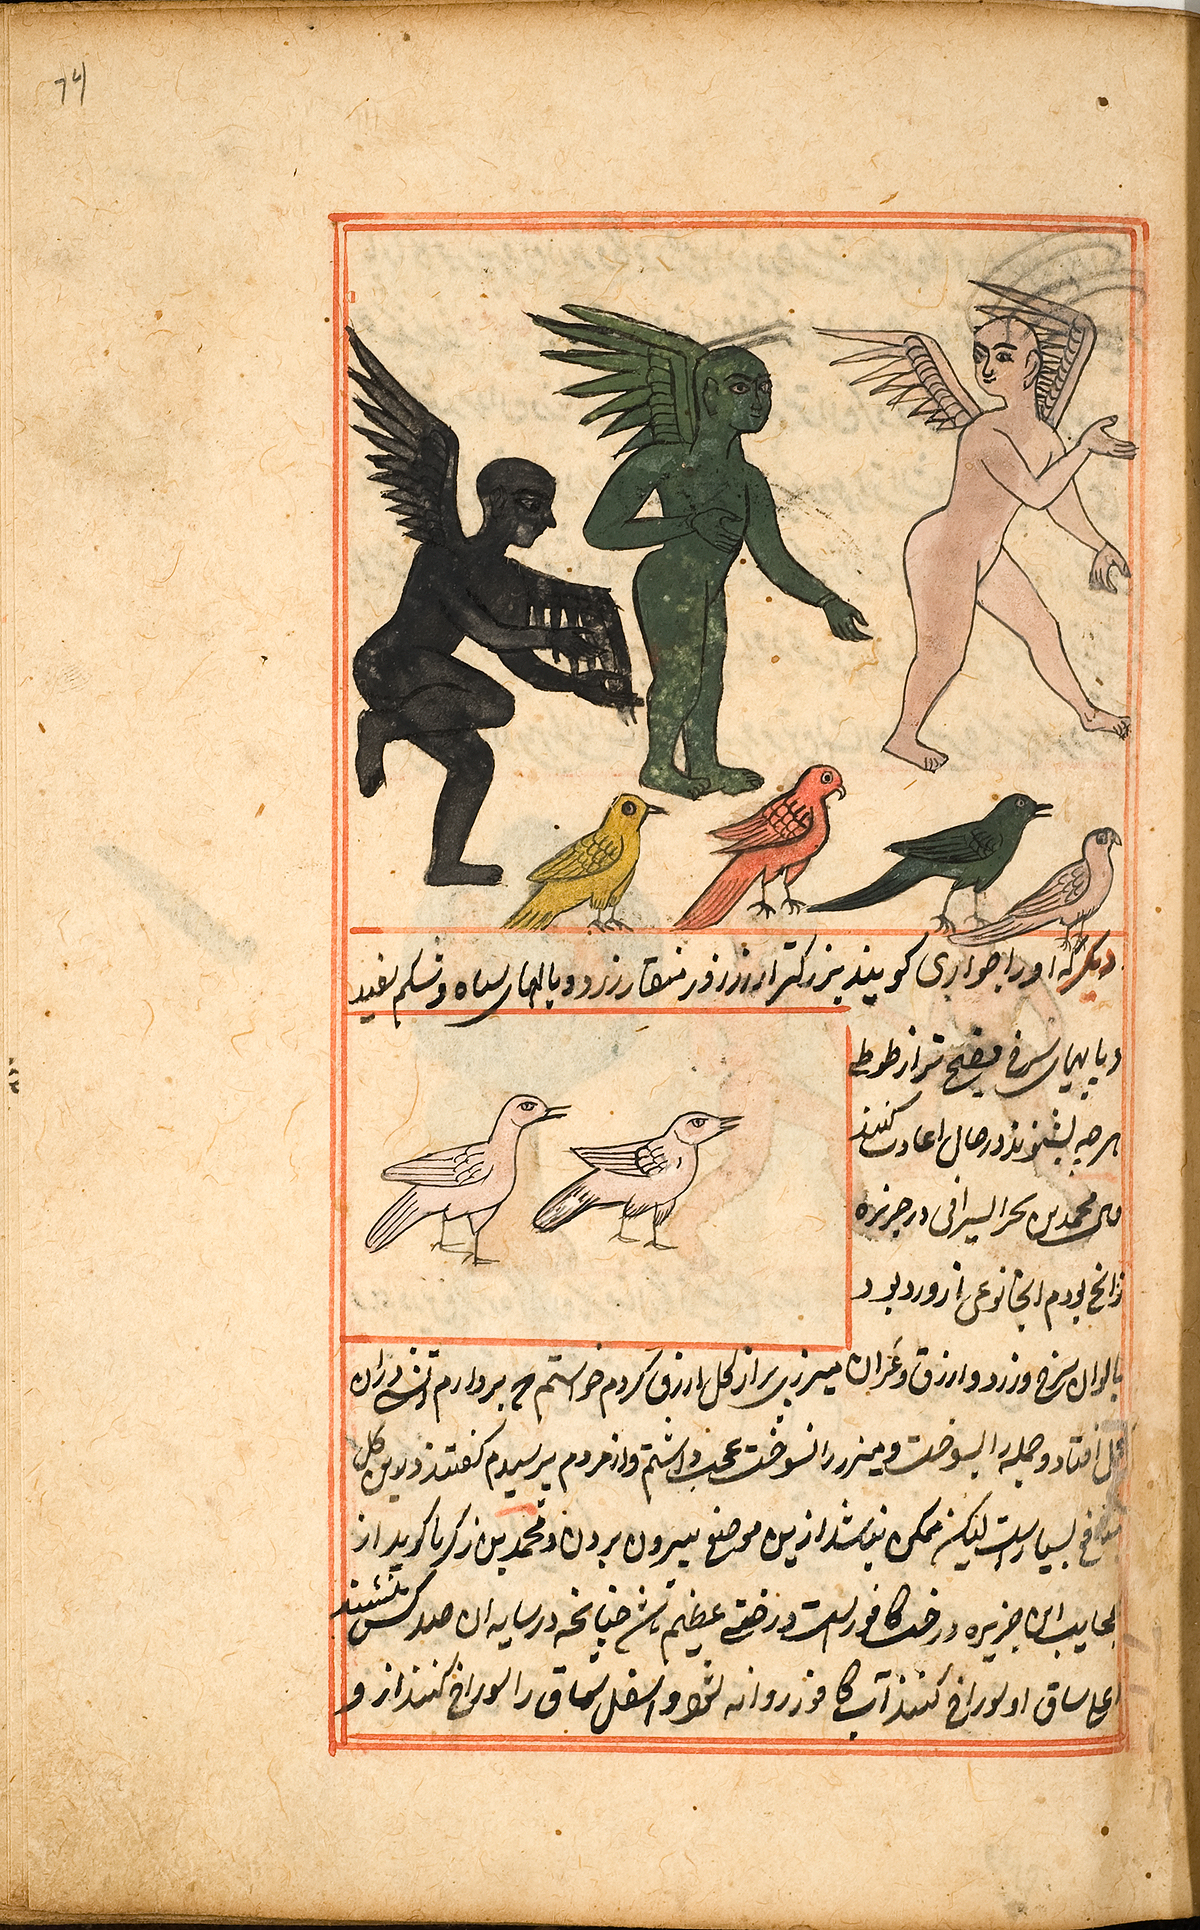 دیگر که اورا حواری کویند بزرکتر از زرزور منقار زرد و بالهای سیاه و شکم سفید
و پایهای سرخ فصیح تر از طوطی
هر چه بشنوند در حال اعادت کنند
محمد بن بحر السیرافی در جزیره
زانج بودم انجا نوعی از ورد بود
بالوان سرخ و زرد و ازرق و غیران میزری پر از کل ازرق کردم خواستم که بردارم اتشی دران
کل افتاد و جمله را بسوخت و میزر را نسوخت عجب داشتم و از مردم پرسیدم کفتند درین کل
منافع بسیارست لیکن ممکن نباشد ازین موضع بیرون بردن و محمد بن زکریا کوید از
عجایب این جزیره درخت کافورست درختی عظیم باشد چنانچه در سایه ان صد کس بنشینند
اعلی ساق او سوراخ کنند آب کافور روانه شود و اسفل ساق را سوراخ کنند از و